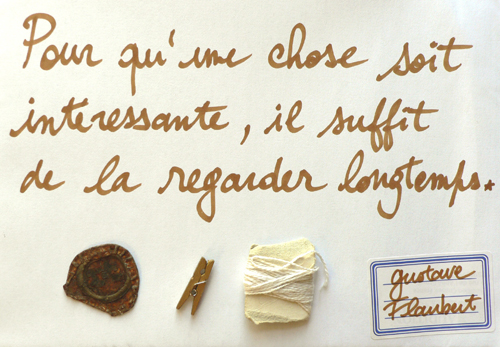 Pour qu'une chose soit
intéressante, il suffit
de la regarder longtemps.
gustave
Flaubert